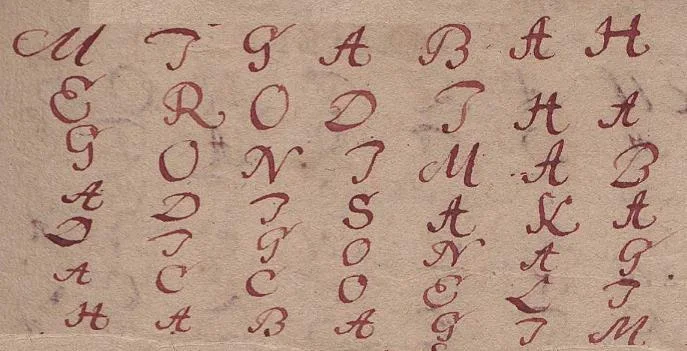 M I G A B A H
E R O D I H A
G O N I M A B
A D I S A K A
D I G O N A G
A C C O E L I
H A B A G I M